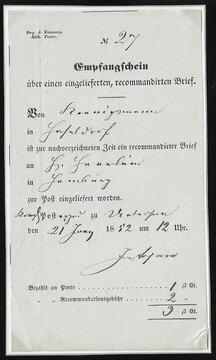 Dep. d. Finanzen.
Abth. Posten.
№ 27
Empfangschein
über einen eingelieferten, recommandirten Brief.
Von
in Haseldorf
ist zur nachverzeichneten Zeit ein recommandirter Brief
an H. Haarlem
in Hamburg
zur Post eingeliefert worden.
zu Uetersen
den 21 Juny 1852 um 12 Uhr.
Bezahlt an Porto 1 ß Ct.
„ „ Recommandationsgebühr 2 „
3 ß Ct.